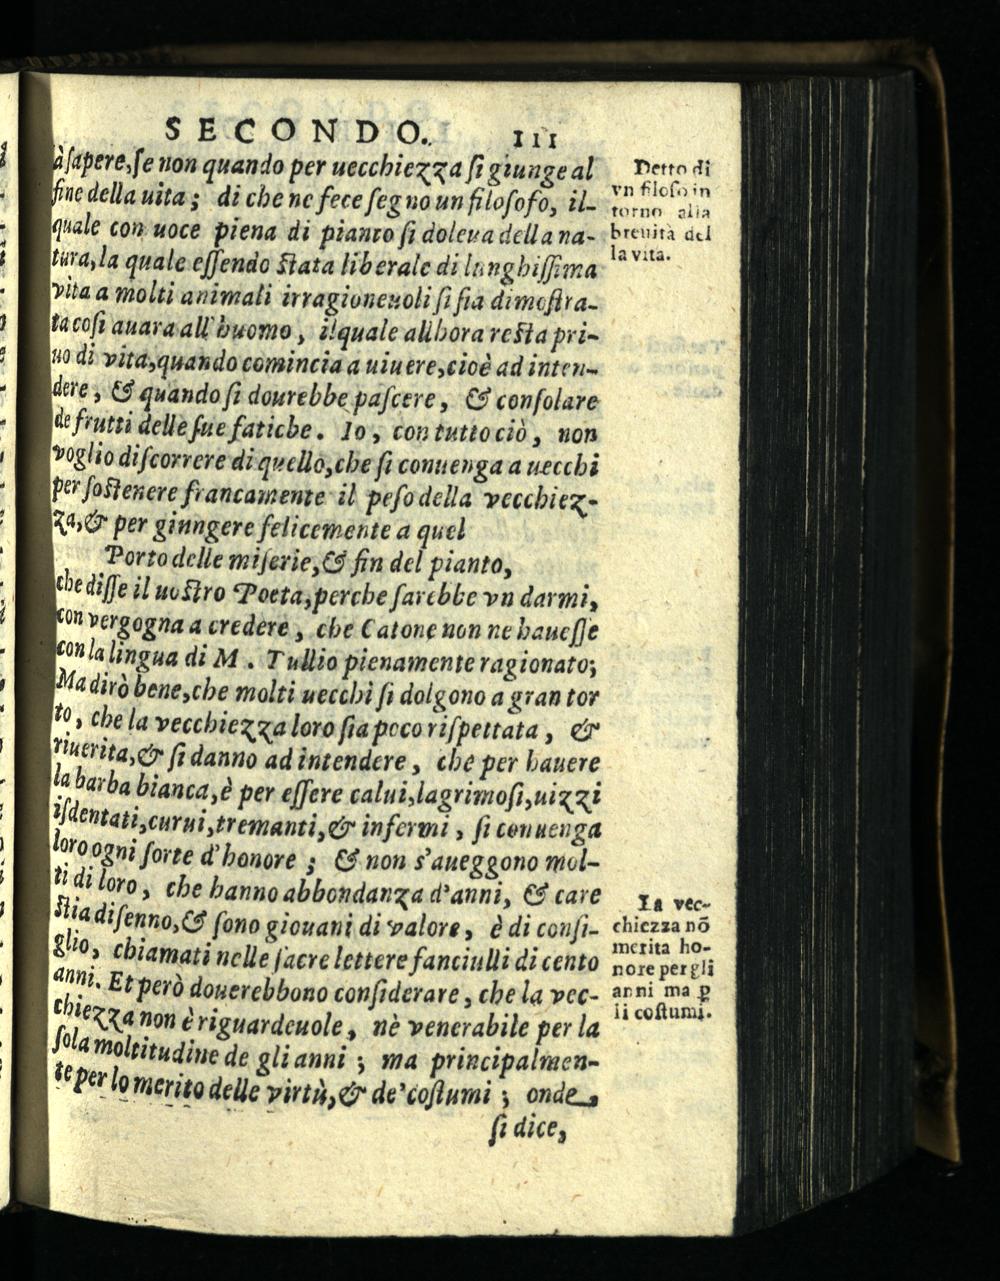 SECONDO. 111
à ſapere, ſe non quando per uecchiezza ſi giunge al
fine della uita; di che ne fece ſegno un filoſofo, il-
quale con uoce piena di pianto ſi doleua della na-
tura, la quale eſſendo ſtata liberale di lunghiſſima
vita a molti animali irragioneuoli ſi ſia dimoſtra-
ta coſi auara all'huomo, ilquale allhora reſta pri-
uo di vita, quando comincia a uiuere, cioè ad inten-
dere, & quando ſi dourebbe paſcere, & conſolare
de frutti delle ſue fatiche. Io, con tutto ciò, non
voglio diſcorrere di quello, che ſi conuenga a uecchi
per ſoſtenere francamente il peſo della vecchiez-
za, & per giungere felicemente a quel
Porto delle miſerie, & fin del pianto,
che diſſe il uoſtro Poeta, perche ſarebbe vn darmi,
con vergogna a credere, che Catone non ne haueſſe
con la lingua di M. Tullio pienamente ragionato;
Ma dirò bene, che molti uecchi ſi dolgono a gran tor
to, che la vecchiezza loro ſia poco riſpettata, &
riuerita, & ſi danno ad intendere, che per hauere
la barba bianca, è per eſſere calui, lagrimoſi, uizzi
iſdentati, curui, tremanti, & infermi, ſi conuenga
loro ogni ſorte d'honore; & non s'aueggono mol-
ti di loro, che hanno abbondanza d'anni, & care
ſtia di ſenno, & ſono giouani di valore, è di conſi-
glio, chiamati nelle ſacre lettere fanciulli di cento
anni. Et però douerebbono conſiderare, che la vec-
chiezza non è riguardeuole, nè venerabile per la
ſola moltitudine de gli anni; ma principalmen-
te per lo merito delle virtù, & de' coſtumi; onde,
ſi dice,
Detto di
vn filoſo in
torno alla
breuità del
la vita.
La vec-
chiezza nō
merita ho-
nore per gli
anni ma ꝑ
li coſtumi.